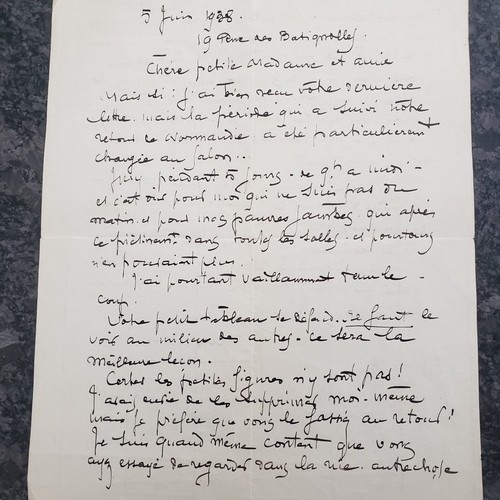 5 Juin 1938.
19 Rue des Batignolles.
Chère petite Madame et amie
Mais si : j'ai bien reçu votre dernière
lettre. mais la période qui a suivi notre
retour de Normandie a été particulièrement
chargée au Salon..
Jury pendant 5 jours - de 9h à midi -
et c'est dur pour moi qui ne suis pas du
matin. et pour mes pauvres jambes qui après
ce piétinement dans toutes les salles - et pourtours
n'en pouvaient plus.
J'ai pourtant vaillamment tenu le
coup.
Votre petit tableau se défend. Il faut le
voir au milieu des autres - ce sera la
meilleure leçon.
Certes les petites figures n'y sont pas !
J'avais envie de les supprimer moi-même
mais je préfère que vous le fassiez au retour !
Je suis quand même content que vous
ayez essayé de regarder dans la rue - autre chose